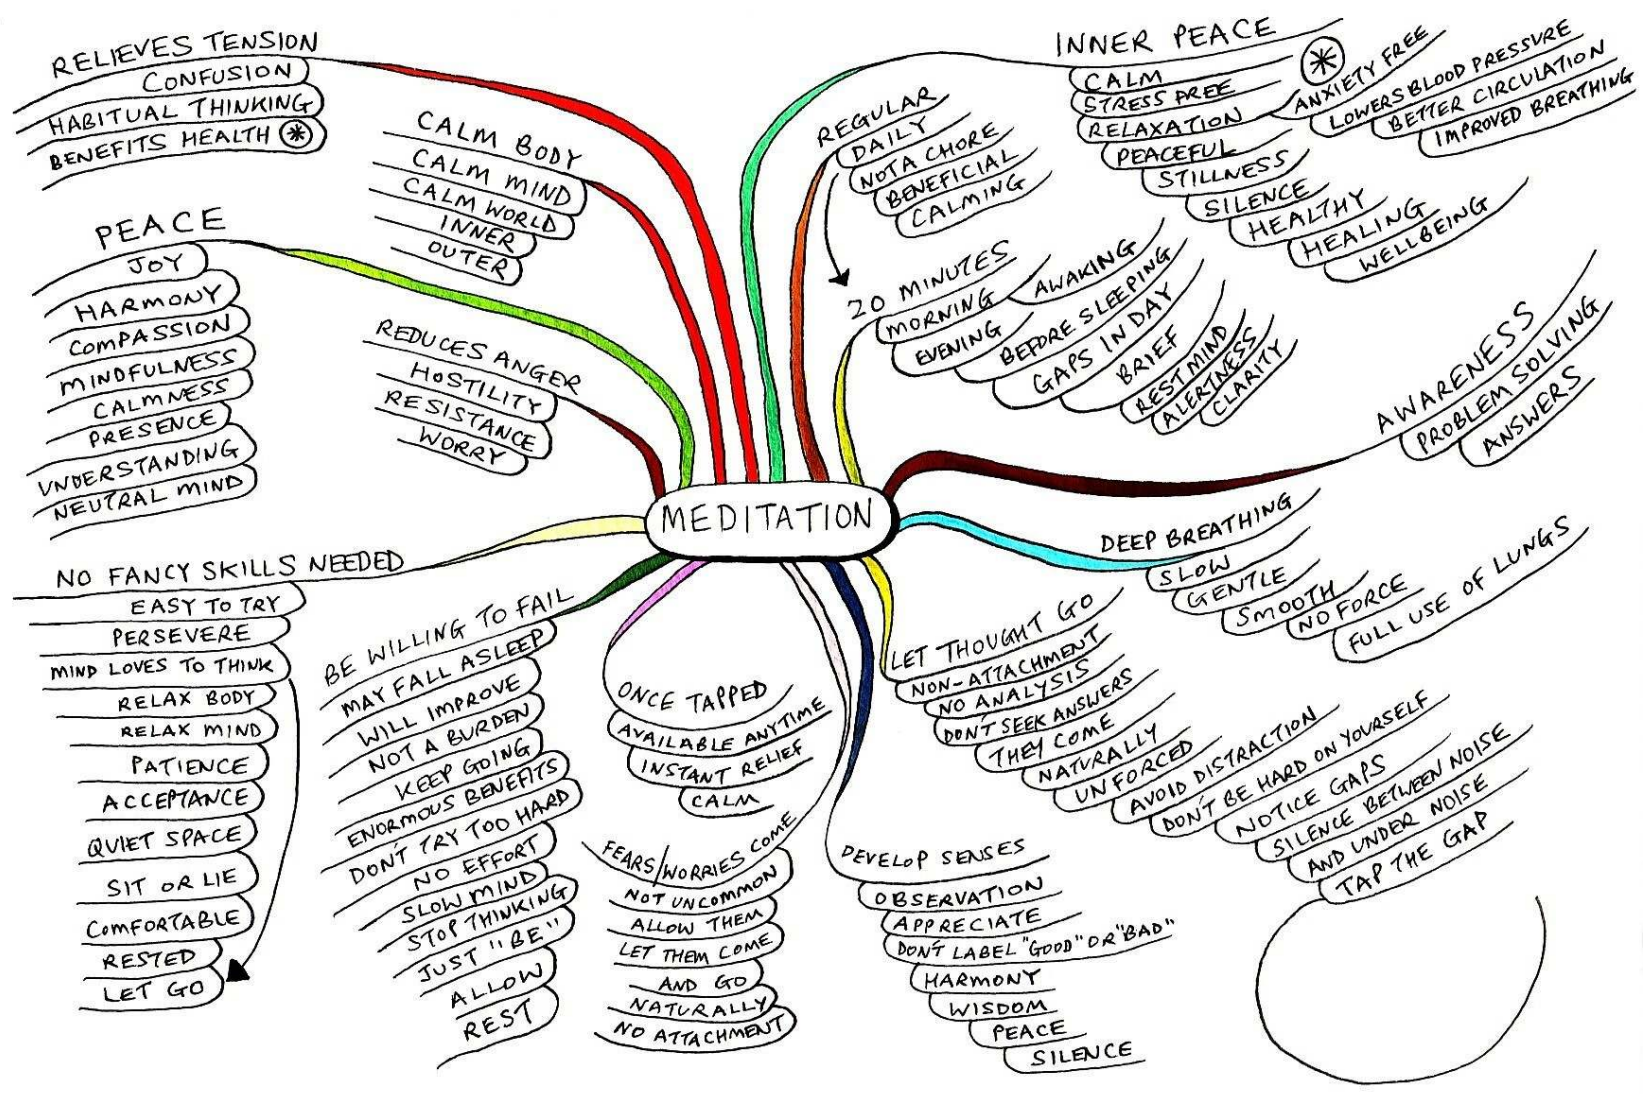 MEDITATION
RELIEVES TENSION
CONFUSION
HABITUAL THINKING
BENEFITS HEALTH
CALM BODY
CALM MIND
CALM WORLD
INNER
OUTER
PEACE
JOY
HARMONY
COMPASSION
MINDFULNESS
CALMNESS
PRESENCE
UNDERSTANDING
NEUTRAL MIND
REDUCES ANGER
HOSTILITY
RESISTANCE
WORRY
NO FANCY SKILLS NEEDED
EASY TO TRY
PERSEVERE
MIND LOVES TO THINK
RELAX BODY
RELAX MIND
PATIENCE
ACCEPTANCE
QUIET SPACE
SIT OR LIE
COMFORTABLE
RESTED
LET GO
BE WILLING TO FAIL
MAY FALL ASLEEP
WILL IMPROVE
NOT A BURDEN
KEEP GOING
ENORMOUS BENEFITS
DON'T TRY TOO HARD
NO EFFORT
SLOW MIND
STOP THINKING
JUST "BE"
ALLOW
REST
ONCE TAPPED
AVAILABLE ANYTIME
INSTANT RELIEF
CALM
FEARS/WORRIES COME
NOT UNCOMMON
ALLOW THEM
LET THEM COME
AND GO
NATURALLY
NO ATTACHMENT
DEVELOP SENSES
OBSERVATION
APPRECIATE
DON'T LABEL "GOOD" OR "BAD"
HARMONY
WISDOM
PEACE
SILENCE
LET THOUGHT GO
NON-ATTACHMENT
NO ANALYSIS
DON'T SEEK ANSWERS
THEY COME
NATURALLY
UNFORCED
AVOID DISTRACTION
DON'T BE HARD ON YOURSELF
NOTICE GAPS
SILENCE BETWEEN NOISE
AND UNDER NOISE
TAP THE GAP
DEEP BREATHING
SLOW
GENTLE
SMOOTH
NO FORCE
FULL USE OF LUNGS
AWARENESS
PROBLEM SOLVING
ANSWERS
20 MINUTES
MORNING
AWAKING
EVENING
BEFORE SLEEPING
GAPS IN DAY
BRIEF
REST MIND
ALERTNESS
CLARITY
REGULAR
DAILY
NOT A CHORE
BENEFICIAL
CALMING
INNER PEACE
CALM
STRESS FREE
RELAXATION
ANXIETY FREE
LOWERS BLOOD PRESSURE
BETTER CIRCULATION
IMPROVED BREATHING
PEACEFUL
STILLNESS
SILENCE
HEALTHY
HEALING
WELLBEING